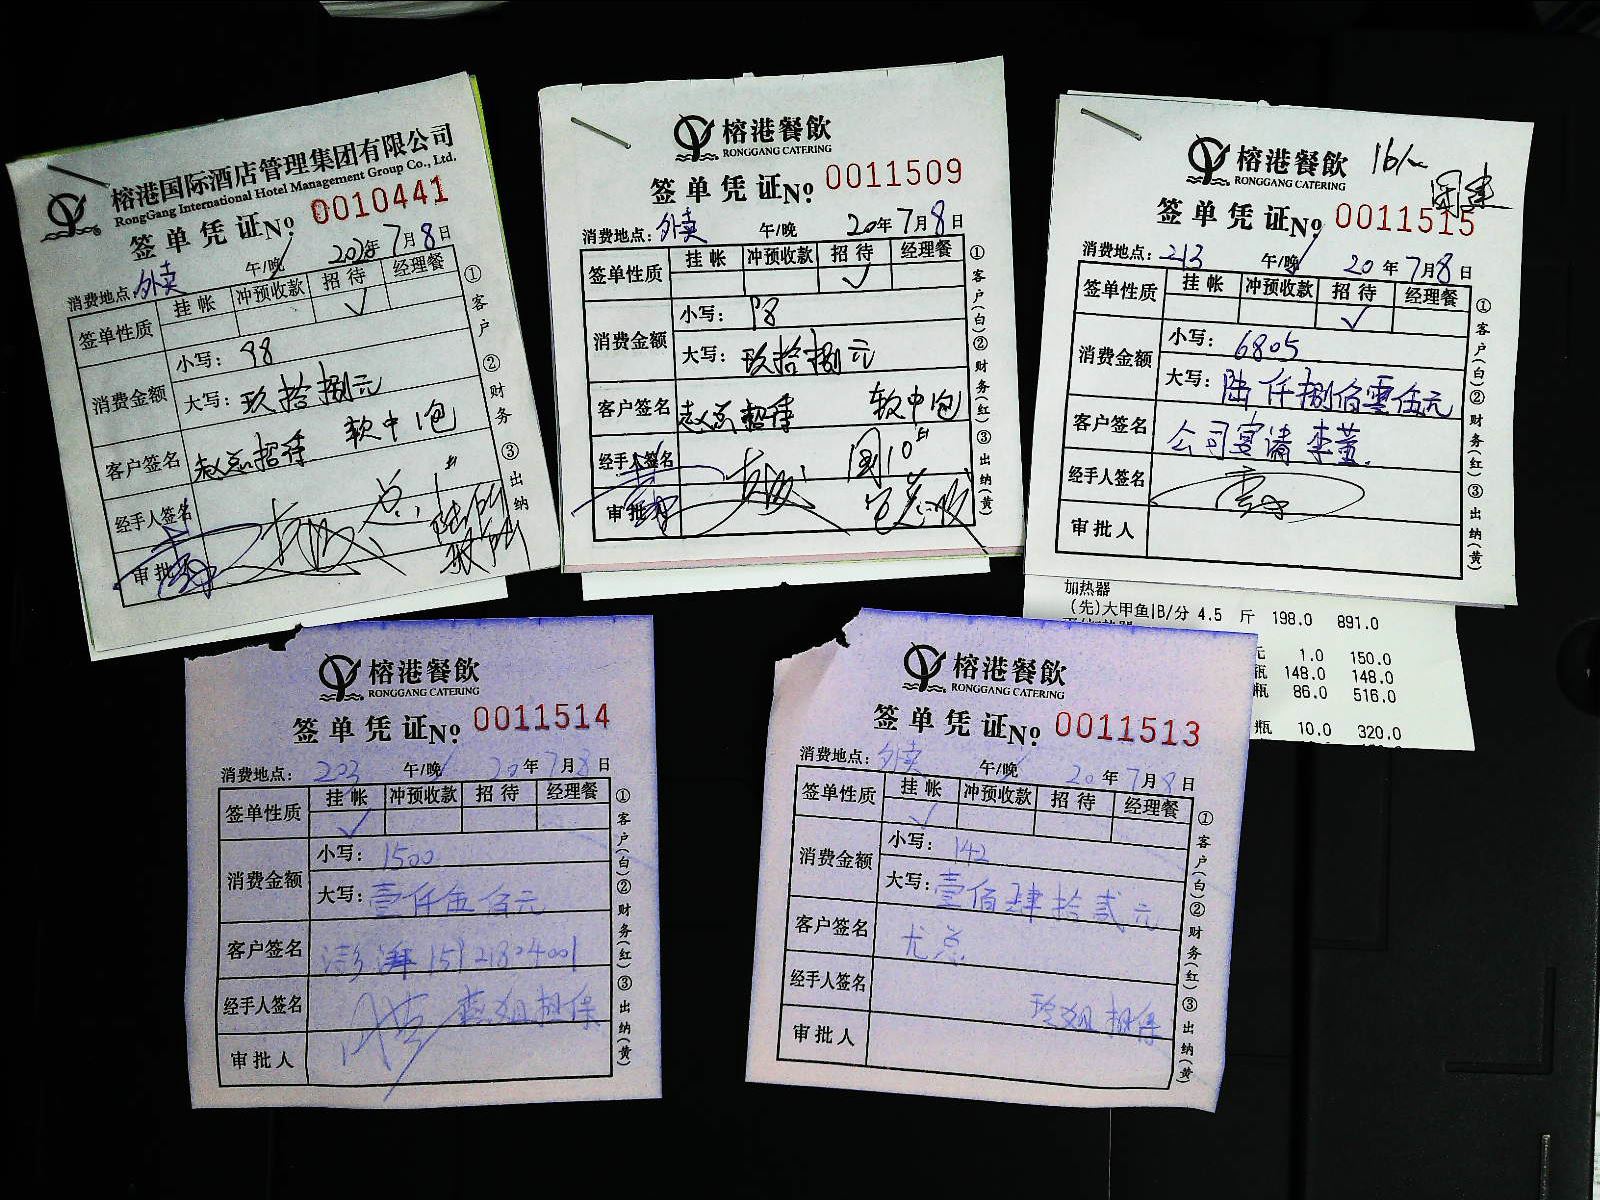 榕港国际酒店管理集团有限公司
RongGang International Hotel Management Group Co., Ltd.
签单凭证 No. 0010441
消费地点: 外卖 午/晚 2020年7月8日
签单性质 挂帐 冲预收款 招待 经理餐
✓
消费金额 小写: 98
大写: 玖拾捌元
客户签名 赵总招待 软中1包
经手人签名
审批人
①客户 ②财务 ③出纳
榕港餐飲
RONGGANG CATERING
签单凭证 No. 0011509
消费地点: 外卖 午/晚 20年7月8日
签单性质 挂帐 冲预收款 招待 经理餐
✓
消费金额 小写: 98
大写: 玖拾捌元
客户签名 赵总招待 软中1包
经手人签名
审批人
①客户(白)②财务(红)③出纳(黄)
榕港餐飲 16/
RONGGANG CATERING
签单凭证 No. 0011515
消费地点: 213 午/晚 20年7月8日
签单性质 挂帐 冲预收款 招待 经理餐
✓
消费金额 小写: 6805
大写: 陆仟捌佰零伍元
客户签名 公司宴请 李董.
经手人签名
审批人
①客户(白)②财务(红)③出纳(黄)
加热器
(先)大甲鱼|B/分 4.5 斤 198.0 891.0
元 1.0 150.0
瓶 148.0 148.0
瓶 86.0 516.0
瓶 10.0 320.0
榕港餐飲
RONGGANG CATERING
签单凭证 No. 0011514
消费地点: 203 午/晚 20年7月8日
签单性质 挂帐 冲预收款 招待 经理餐
✓
消费金额 小写: 1500
大写: 壹仟伍佰元
客户签名 澎湃 15121824001
经手人签名 姐担保
审批人
①客户(白)②财务(红)③出纳(黄)
榕港餐飲
RONGGANG CATERING
签单凭证 No. 0011513
消费地点: 外卖 午/晚 20年7月8日
签单性质 挂帐 冲预收款 招待 经理餐
✓
消费金额 小写: 142
大写: 壹佰肆拾贰元
客户签名 尤总
经手人签名 玲姐担保
审批人
①客户(白)②财务(红)③出纳(黄)